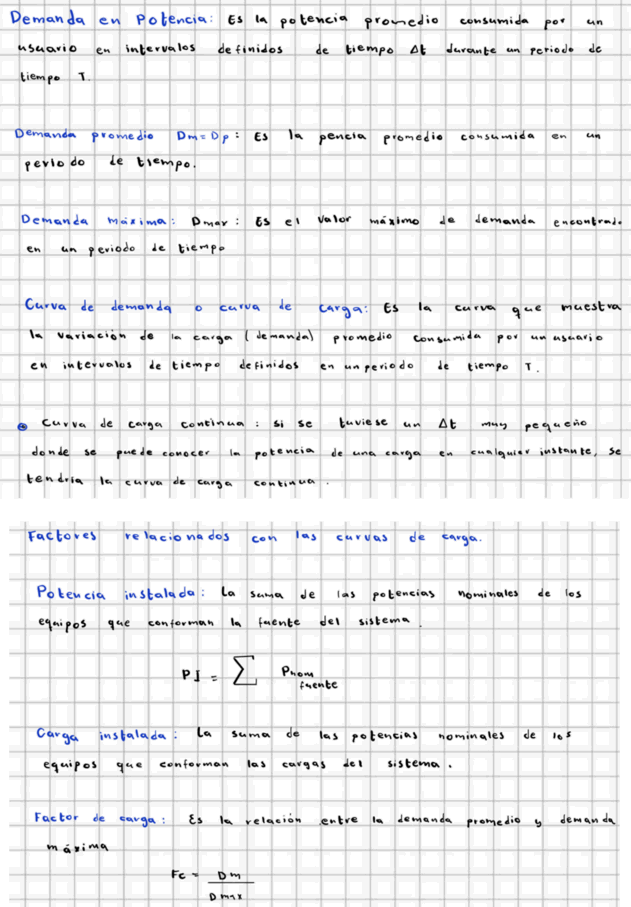 Demanda en Potencia: Es la potencia promedio consumida por un
usuario en intervalos definidos de tiempo Δt durante un periodo de
tiempo T.
Demanda promedio Dm=Dp: Es la pencia promedio consumida en un
periodo de tiempo.
Demanda máxima: Dmax: Es el valor máximo de demanda encontrado
en un periodo de tiempo
Curva de demanda o curva de carga: Es la curva que muestra
la variación de la carga (demanda) promedio consumida por un usuario
en intervalos de tiempo definidos en un periodo de tiempo T.
Curva de carga continua: si se tuviese un Δt muy pequeño
donde se puede conocer la potencia de una carga en cualquier instante, se
tendria la curva de carga continua.
Factores relacionados con las curvas de carga.
Potencia instalada: La suma de las potencias nominales de los
equipos que conforman la fuente del sistema.
PI = ∑ Pnom
fuente
Carga instalada: La suma de las potencias nominales de los
equipos que conforman las cargas del sistema.
Factor de carga: Es la relación entre la demanda promedio y demanda
máxima
Fc = Dm
Dmax